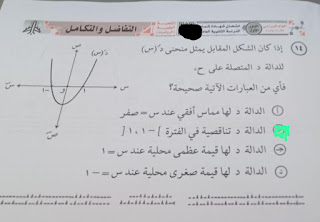 التفاضل والتكامل
١٤ إذا كان الشكل المقابل يمثل منحنى دَ(س)
للدالة د المتصلة على ح،
فأي من العبارات الآتية صحيحة؟
دَ(س)
ص
س
سَ
١-
و
١
صَ
أ الدالة د لها مماس أفقي عند س = صفر
الدالة د تناقصية في الفترة ]-١، ١[
ج الدالة د لها قيمة عظمى محلية عند س = ١
د الدالة د لها قيمة صغرى محلية عند س = -١